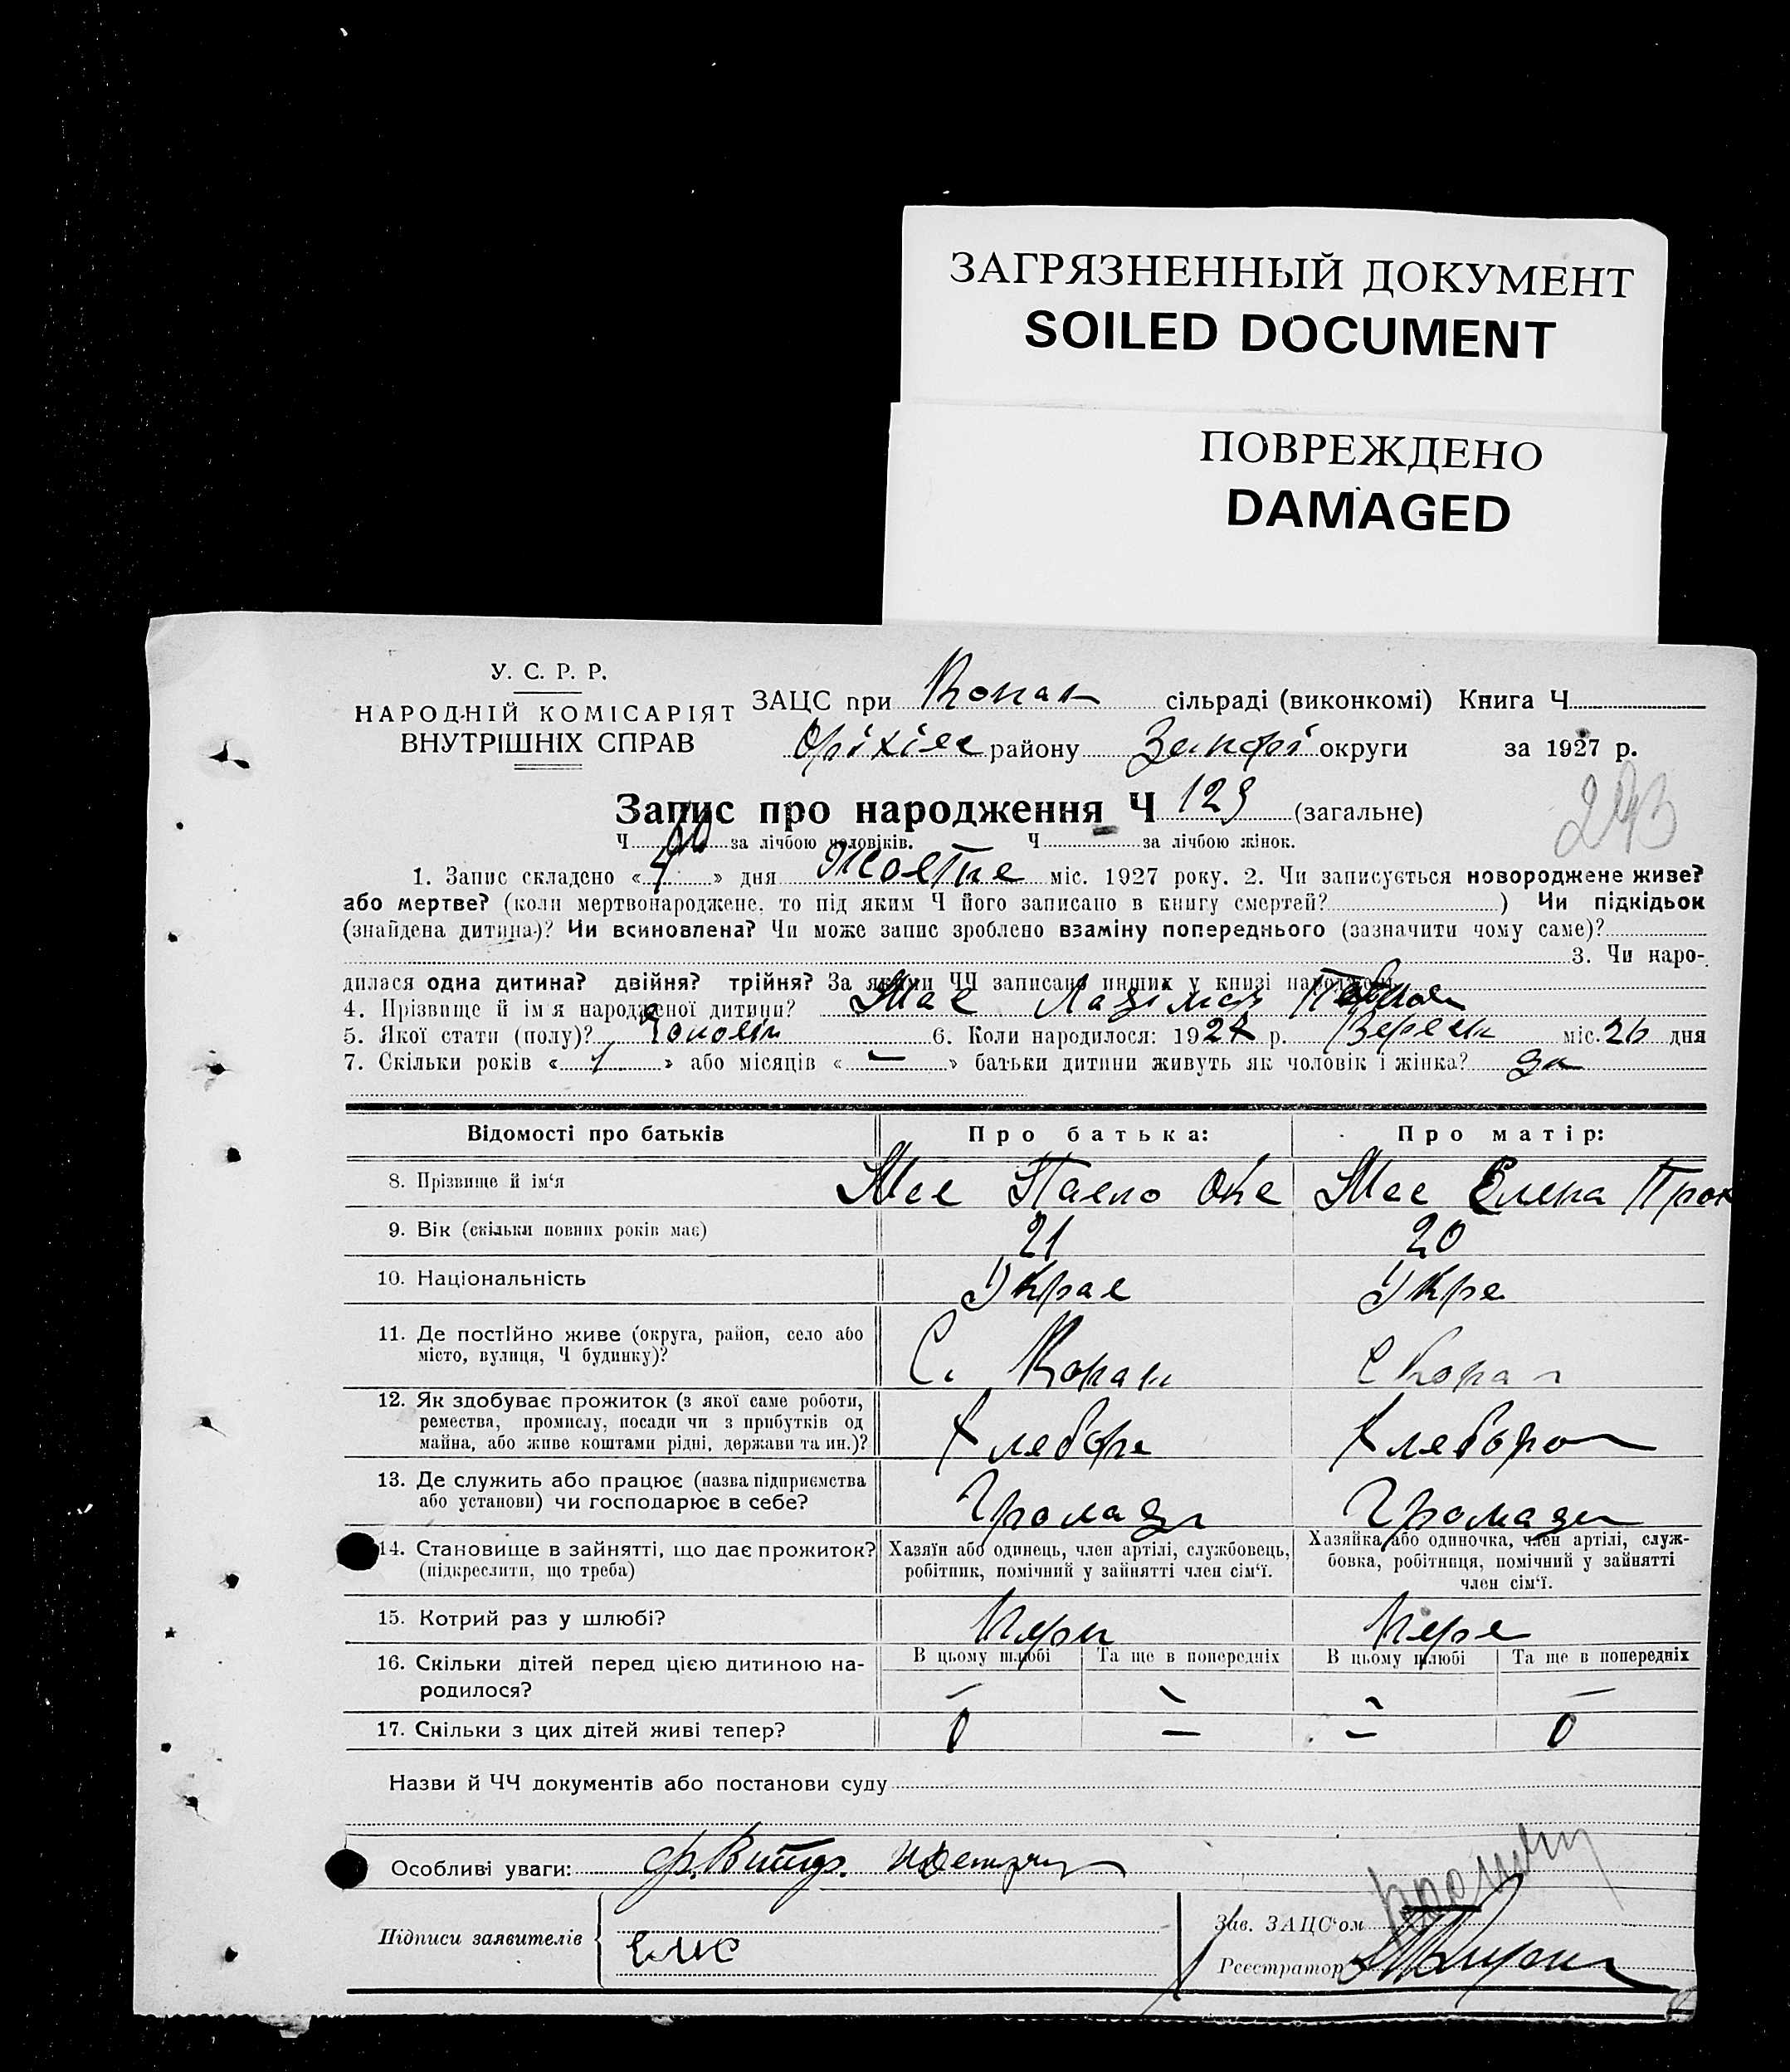 ЗАГРЯЗНЕННЫЙ ДОКУМЕНТ
SOILED DOCUMENT
ПОВРЕЖДЕНО
DAMAGED
У. С. Р. Р.
НАРОДНІЙ КОМІСАРІЯТ
ВНУТРІШНІХ СПРАВ
ЗАЦС при Копан сільраді (виконкомі) Книга Ч
Оріхів району Запорі округи за 1927 р.
Запис про народження Ч 129 (загальне)
293
Ч за лічбою чоловіків. Ч — за лічбою жінок.
1. Запис складено «4» дня Жовтне міс. 1927 року. 2. Чи записується новороджене живе?
або мертве? (коли мертвонароджене, то під яким Ч його записано в книгу смертей? ) Чи підкідьок
(знайдена дитина)? Чи всиновлена? Чи може запис зроблено взаміну попереднього (зазначити чому саме)?
3. Чи наро-
дилася одна дитина? двійня? трійня? За якими ЧЧ записано инших у книзі народжень
4. Прізвище й ім'я народженої дитини?
5. Якої стати (полу)? Чоловік 6. Коли народилося: 1927 р. Вересн міс. 26 дня
7. Скільки років « 1 » або місяців « — » батьки дитини живуть як чоловік і жінка? да
Відомості про батьків Про батька: Про матір:
8. Прізвище й ім'я Павло Елена Прок
9. Вік (скільки повних років має) 21 20
10. Національність Украе Укра
11. Де постійно живе (округа, район, село або
місто, вулиця, Ч будинку)? С. Копан С Копан
12. Як здобуває прожиток (з якої саме роботи,
ремества, промислу, посади чи з прибутків од
майна, або живе коштами рідні, держави та ин.)? Хлебороб Хлебороб
13. Де служить або працює (назва підприємства
або установи) чи господарює в себе? Громади Громади
14. Становище в зайнятті, що дає прожиток?
(підкреслити, що треба)
Хазяїн або одинець, член артілі, службовець,
робітник, помічний у зайнятті член сім'ї.
Хазяйка або одиночка, член артілі, служ-
бовка, робітниця, помічний у зайнятті
член сім'ї.
15. Котрий раз у шлюбі? Перш Перв
16. Скільки дітей перед цією дитиною на-
родилося?
В цьому шлюбі Та ще в попередніх В цьому шлюбі Та ще в попередніх
— — — —
17. Скільки з цих дітей живі тепер? 0 — — 0
Назви й ЧЧ документів або постанови суду
Особливі уваги:
Підписи заявителів
Зав. ЗАЦС'ом
Реєстратор